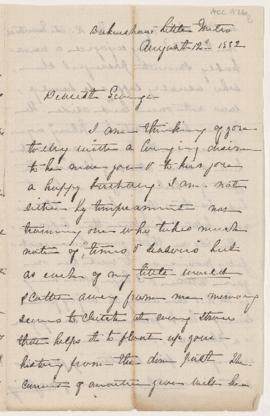 Little Metis
August 12th 1882
Dearest George
I am thinking of you
to day with a longing desire
to be near you & to kiss you
a happy birthday. I am not
either by temperament nor
training one who takes much
note of times & seasons but
as each of my little
scatter away from me memory
seems to clutch at every
that helps it to up your
history from the dim past. The
current of another year will